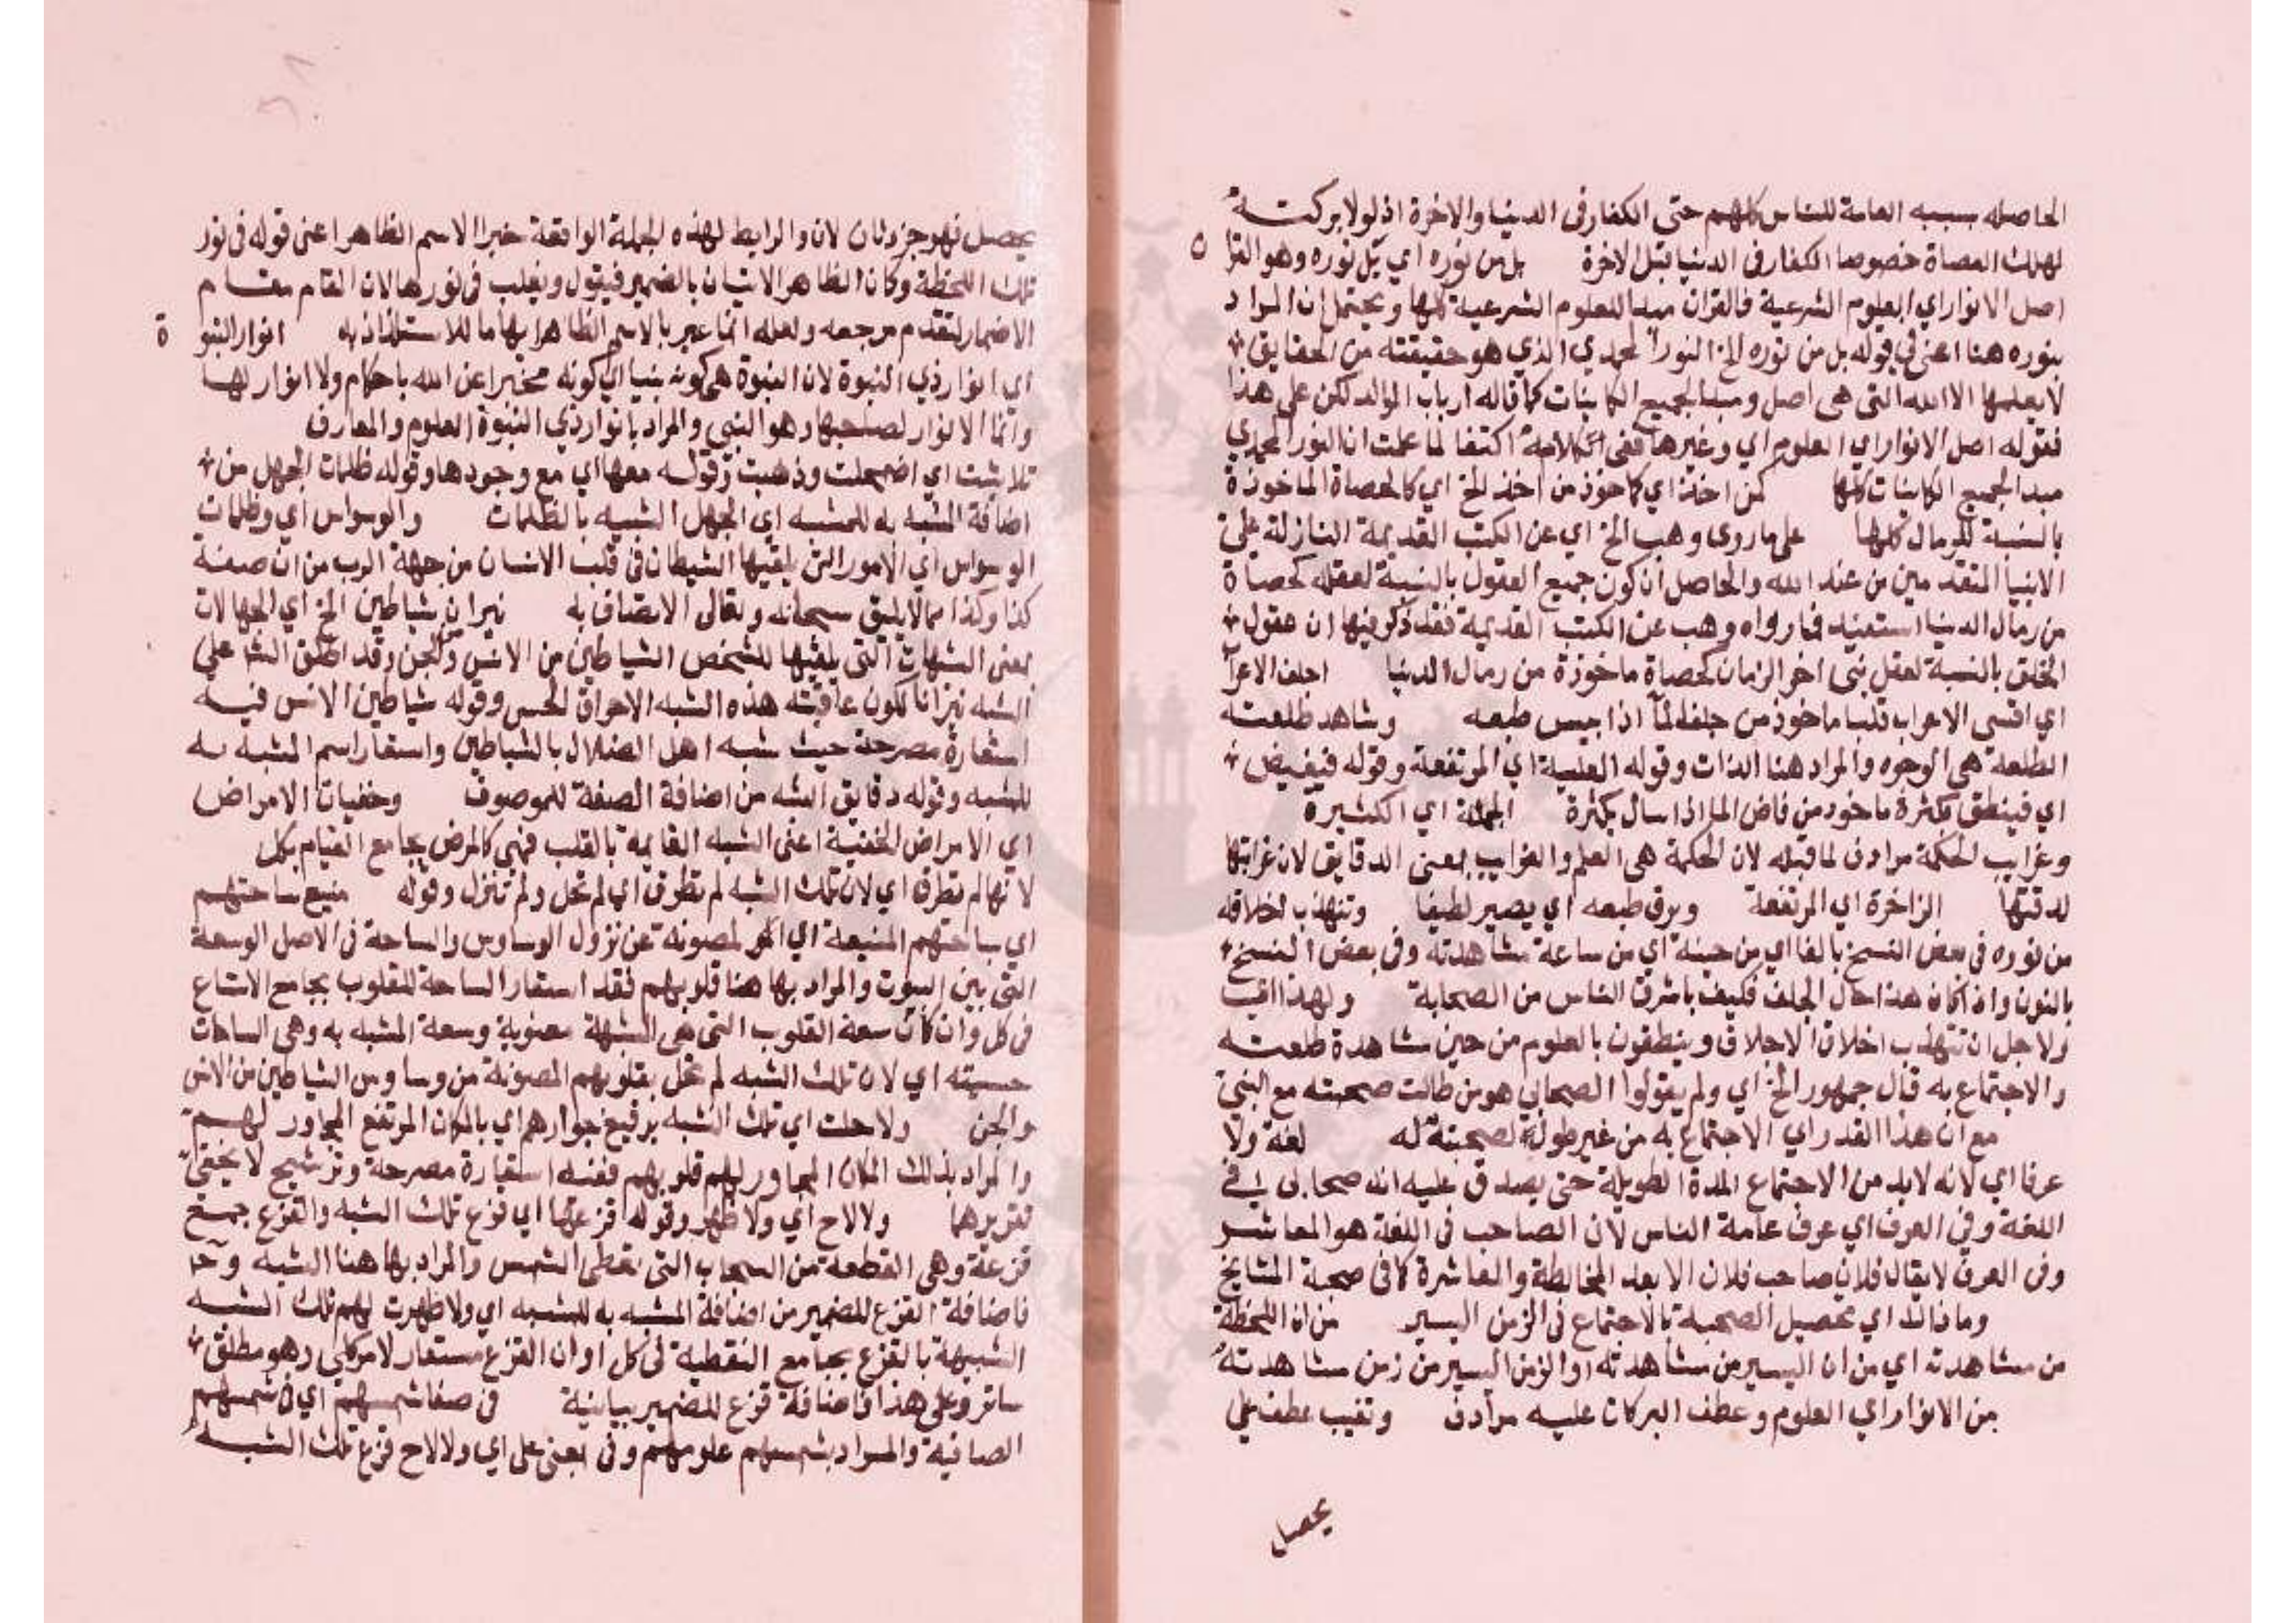 الحاصله بسببه العامة للناس كلهم حتى الكفار فى الدنيا والاخرة اذ لولا بركته
لهلك العصاة خصوصا الكفار فى الدنيا قبل الاخرة بل من نوره اي بل نوره وهو القرا ن
اصل الانوار اي العلوم الشرعية فالقران مبدا للعلوم الشرعية كلها ويحتمل ان المراد
بنوره هنا اعنى فى قوله بل من نوره الخ النور المحمدي الذي هو حقيقته من الحقايق
لا يعلمها الا الله التى هى اصل ومبدا لجميع الكاينات كما قاله ارباب الموالد لكن على هذا
فقوله اصل الانوار اي العلوم اي وغيرها ففى كلامه اكتفا لما علمت ان النور المحمدي
مبدا لجميع الكاينات كلها كمن اخذ اي كماخوذ من اخذ الخ اي كالحصاة الماخوذة
بالنسبة للرمال كلها على ما روى وهب الخ اي عن الكتب القديمة النازلة على
الانبيا المتقدمين من عند الله والحاصل ان كون جميع العقول بالنسبة لعقله كحصاة
من رمال الدنيا استفيد مما رواه وهب عن الكتب القديمة فقد ذكر فيها ان عقول
الخلق بالنسبة لعقل نبى اخر الزمان كحصاة ماخوذة من رمال الدنيا اجلف الاعرا
اي اقسى الاعراب قلبا ماخوذ من جلفه لما اذا يبس طبعه وشاهد طلعته
الطلعة هى الوجوه والمراد هنا الذات وقوله العلية اي المرتفعة وقوله فيفيض
اي فينطق بكثرة ماخوذ من فاض الما اذا سال بكثرة الجملة اي الكثيرة
وغرايب الحكمة مرادف لما قبله لان الحكمة هى العلم والغرايب بمعنى الدقايق لان غرابتها
لدقتها الزاخرة اي المرتفعة ويرق طبعه اي يصير لطيفا وتتهذب اخلاقه
من نوره فى بعض النسخ بالفا اي من حينه اي من ساعة مشاهدته وفى بعض النسخ
بالنون واذا كان هذا حال الجلف فكيف باشرف الناس من الصحابة ولهذا اقيب
ولاجل ان تتهذب اخلاق الاجلاف وينطقون بالعلوم من حين مشاهدة طلعته
والاجتماع به قال جمهور الخ اي ولم يقولوا الصحابي هو من طالت صحبته مع النبى
مع ان هذا القدر اي الاجتماع به من غير طول لصحبته له لغة ولا
عرفا اي لانه لابد من الاجتماع المدة الطويلة حتى يصدق عليه انه صحابى فى
اللغة وفى العرف اي عرف عامة الناس لان الصاحب فى اللغة هو المعاشر
وفى العرف لا يقال فلان صاحب فلان الا بعد المخالطة والمعاشرة كما فى صحبة المشايخ
وما ذاك اي تحصيل الصحبة بالاجتماع فى الزمن اليسير من ان اللحظة
من مشاهدته اي من ان اليسير من مشاهدته او الزمن اليسير من زمن مشاهدته
من الانوار اي العلوم وعطف البركات عليه مرادف وتغيب عطف على
يحصل
يحصل فهو جزء ثان لان والرابط لهذه الجملة الواقعة خبرا الاسم الظاهر اعنى قوله فى نور
تلك اللحظة وكان الظاهر الاتيان بالضمير فيقول وتغلب فى نورها لان المقام مقام
الاضمار لتقدم مرجعه ولعله انما عبر بالاسم الظاهر ايهاما للاستلذاذ به انوار النبو ة
اي انوار ذي النبوة لان النبوة هى كونه نبيا اي كونه مخبرا عن الله باحكام ولا انوار لها
وانما الانوار لصاحبها وهو النبي والمراد بانوار ذي النبوة العلوم والمعارف
تلاشت اي اضمحلت وذهبت وقوله معها اي مع وجودها وقوله ظلمات الجهل من
اضافة المشبه به للمشبه اي الجهل الشبيه بالظلمات والوسواس اي وظلمات
الوسواس اي الامور التى يلقيها الشيطان فى قلب الانسان من جهة الرب من ان صفته
كذا وكذا مما لا يليق سبحانه وتعالى الاتصاف به نيران شياطين الخ اي الجهالات
بمعنى الشبهات التى يلقيها للشخص الشياطين من الانس والجن وقد اطلق الشا على
الشبه نيرانا لكون عاقبته هذه الشبه الاحراق الحسى وقوله شياطين الانس فيه
استعارة مصرحة حيث شبه اهل الضلال بالشياطين واستعار اسم المشبه به
للمشبه وقوله دقايق الشبه من اضافة الصفة للموصوف وخفيات الامراض
اي الامراض الخفية اعنى الشبه القايمة بالقلب فهى كالمرض بجامع القيام بكل
لانها لم تطرق اي لان تلك الشبه لم تطرق اي لم تحل ولم تنزل وقوله منيع ساحتهم
اي ساحتهم المنيعة اي المصونة عن نزول الوساوس والساحة فى الاصل الوسعة
التى بين البيوت والمراد بها هنا قلوبهم فقد استعار الساحة للقلوب بجامع الاتساع
فى كل وان كان سعة القلوب التى هى المشبهة معنوية وسعة المشبه به وهى الساحات
حسيته اي لان تلك الشبه لم تحل بقلوبهم المصونة من وساوس الشياطين من الانس
والجن ولا حلت اي تلك الشبه برفيع جوارهم اي بالمكان المرتفع المجاور لهم
والمراد بذلك المكان المجاور لهم قلوبهم ففيه استعارة مصرحة وترشيح لا يخفى
تقريرهما ولا لاح اي ولا ظهر وقوله قزعها اي قزع تلك الشبه والقزع جمع
قزعة وهى القطعة من السحاب التى تغطى الشمس والمراد بها هنا الشبه وآحا
فاضافة القزع للضمير من اضافة المشبه به للمشبه اي ولا ظهرت لهم تلك الشبه
الشبيهة بالقزع بجامع التغطية فى كل او ان القزع مستعار لامر كلي وهو مطلق
ساتر وعلى هذا فاضافة قزع للضمير بيانية فى صفا شمسهم اي فى شمسهم
الصافية والمراد بشمسهم علومهم وفى بمعنى على اي ولا لاح قزع تلك الشبه